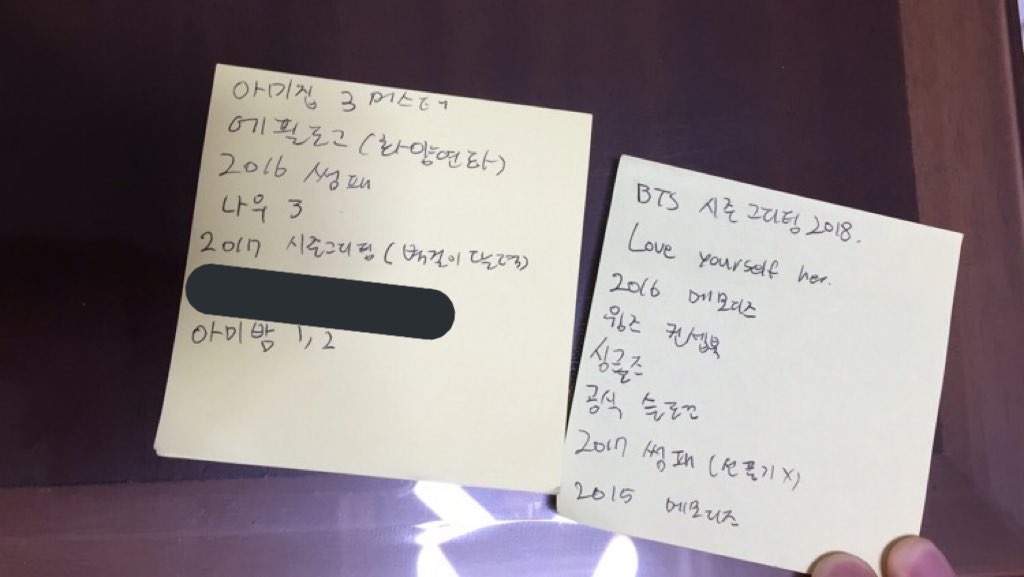 아미집 3 머스터
에필로그 (화양연화)
2016 썸패
나우 3
2017 시즌그리팅 (벽걸이 달력)
아미밤 1, 2
BTS 시즌 그리팅 2018.
Love yourself her.
2016 메모리즈
윙즈 컨셉북
싱글즈
공식 슬로건
2017 썸패 (선풍기 X)
2015 메모리즈